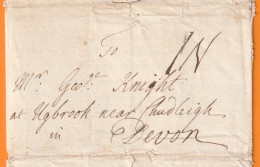 To
Mr. Geo: Knight
at Ugbrook near Chudleigh
in Devon